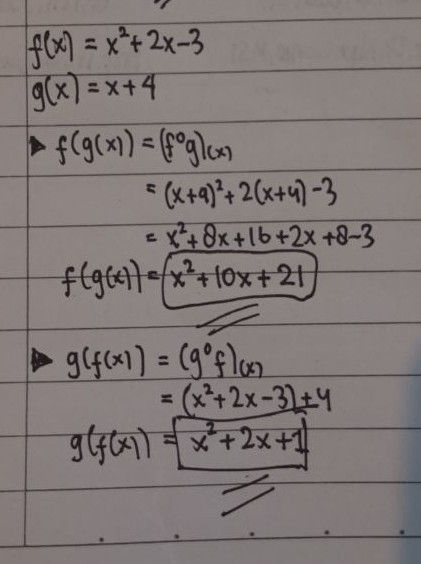 f(x) = x²+2x-3
g(x) = x+4
▶ f(g(x)) = (f∘g)(x)
= (x+4)²+2(x+4)-3
= x²+8x+16+2x+8-3
f(g(x)) = x²+10x+21
▶ g(f(x)) = (g∘f)(x)
= (x²+2x-3)+4
g(f(x)) = x²+2x+1